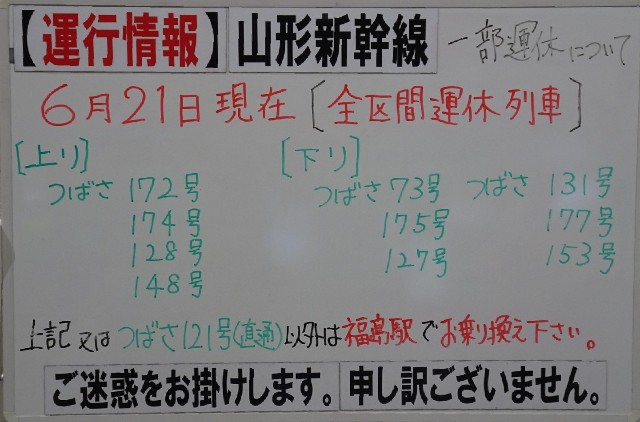 【運行情報】 山形新幹線 一部運休について
6月21日現在 [全区間運休列車]
[上り] [下り]
つばさ 172号 つばさ 73号 つばさ 131号
174号 175号 177号
128号 127号 153号
148号
上記又はつばさ121号(直通)以外は福島駅でお乗り換え下さい。
ご迷惑をお掛けします。 申し訳ございません。